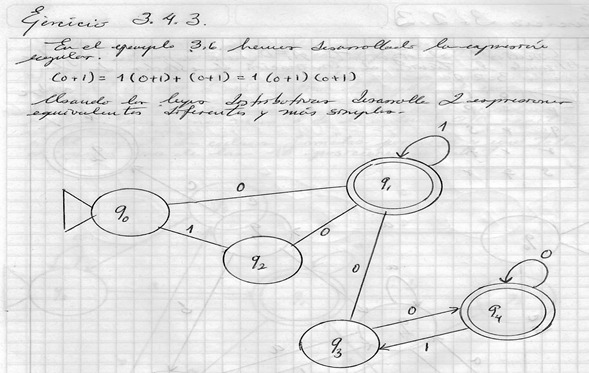 Ejercicio 3.4.3.
En el ejemplo 3.6 hemos desarrollado la expresión
regular.
(0+1)= 1(0+1)+ (0+1) = 1 (0+1) (0+1)
Usando las leyes distributivas desarrolle 2 expresiones
equivalentes diferentes y más simples.
1
0
q1
q0
1
0
q2
0
0
0
q4
q3
1